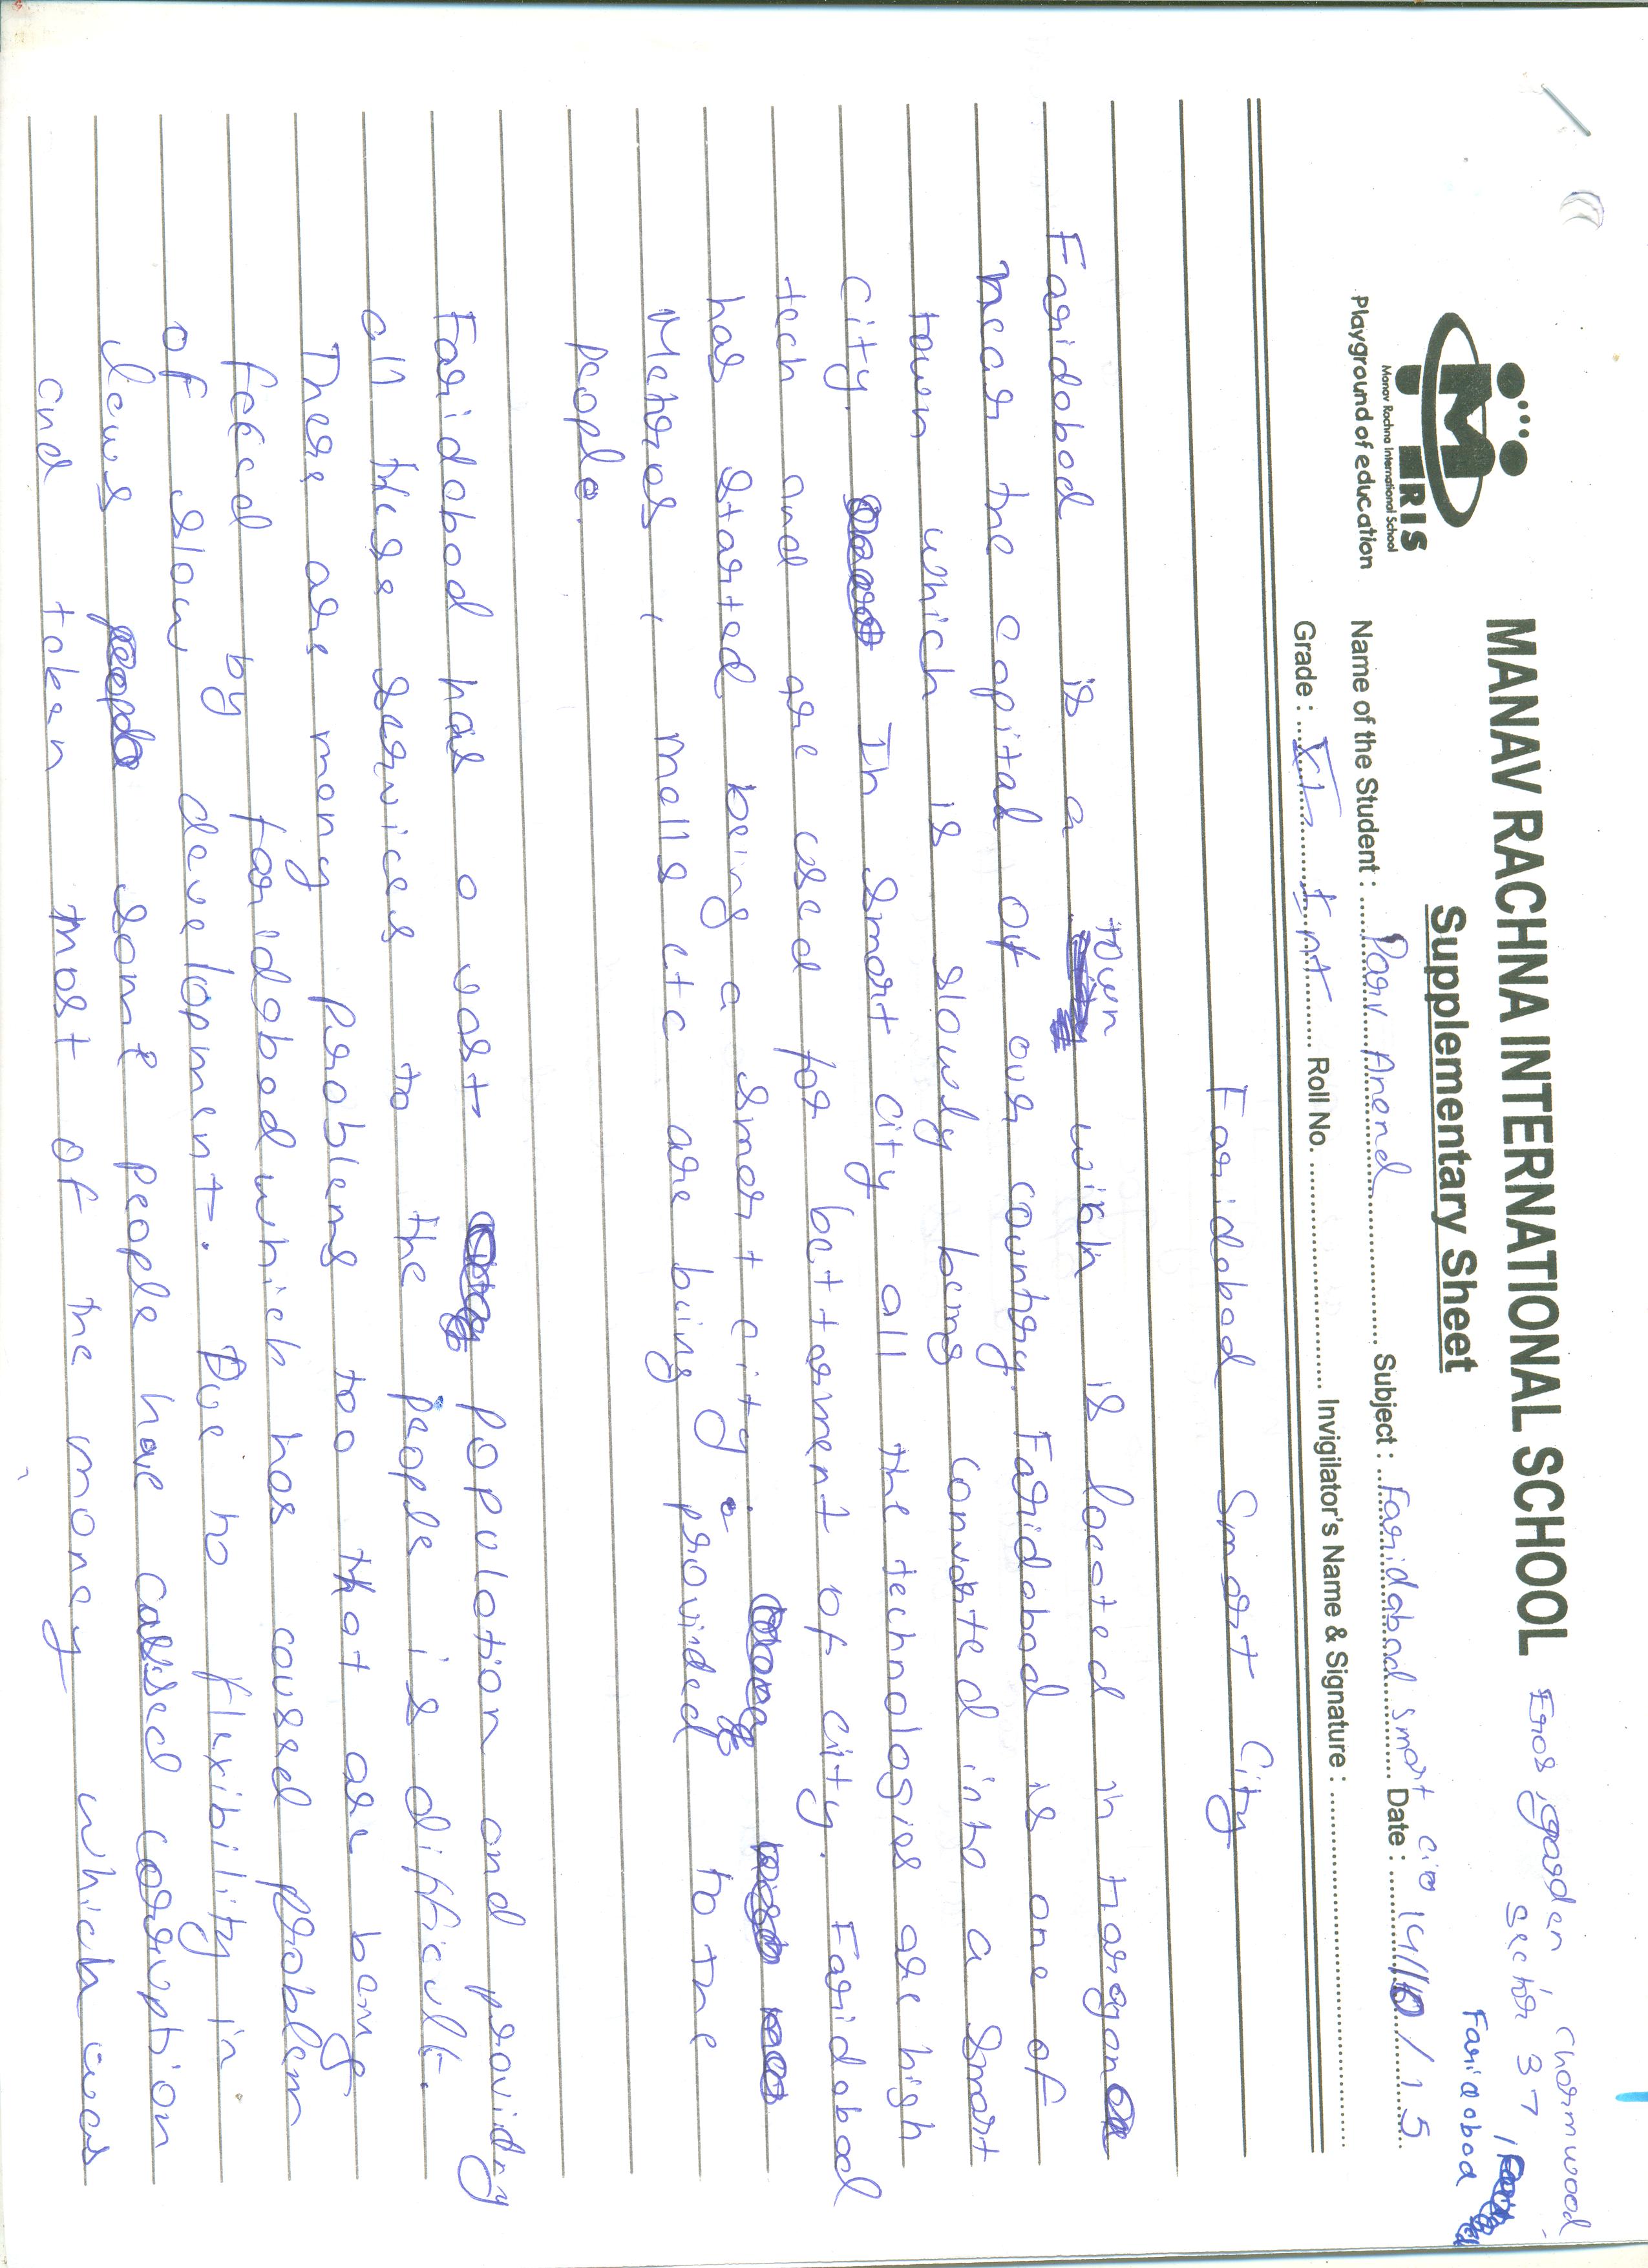 MANAV RACHNA INTERNATIONAL SCHOOL
Eros garden, Charmwood,
Sector 37,
Faridabad
Supplementary Sheet
MRIS
Manav Rachna International School
Playground of education
Name of the Student : Parv Anand Subject : Faridabad Smart Date : 14/10/15
Grade : Roll No. Invigilator's Name & Signature :
Faridabad Smart City
town
Faridabad is a which is located in
near the capital of our country. Faridabad is one of
town which is slowly being converted into a smart
city. In smart city all the technologies are high
tech and are used for betterment of city. Faridabad
has started being a smart city.
Metros, malls etc are being provided to the
people.
Faridabad has a vast population and providing
all these services to the people is difficult.
There are many problems too that are being
faced by faridabad which has caused problem
of slow development. Due no flexibility in
laws some people have caused corruption
and taken most of the money which was